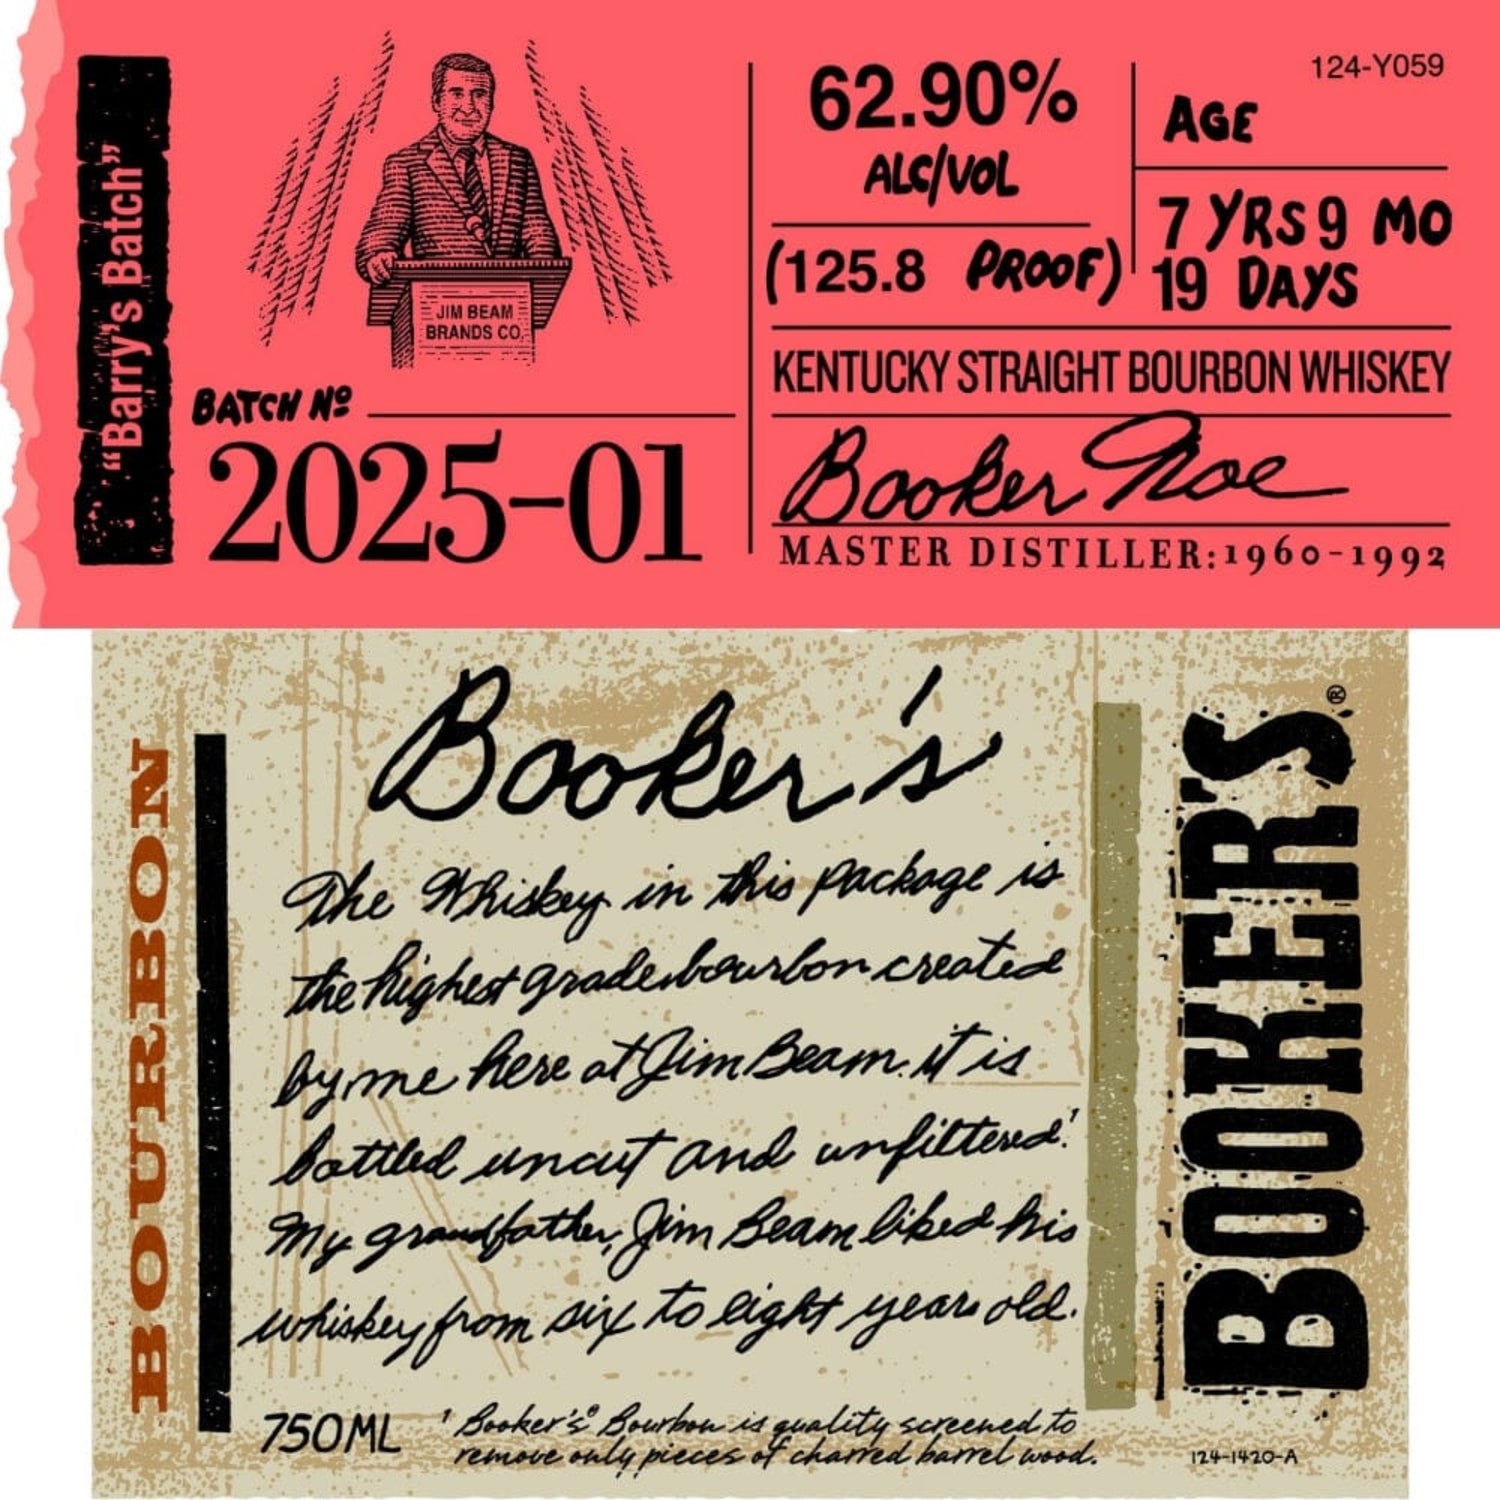 "Barry's Batch"
JIM BEAM
BRANDS CO.
BATCH Nº
2025-01
62.90%
ALC/VOL
(125.8 PROOF)
124-Y059
AGE
7 YRS 9 MO
19 DAYS
KENTUCKY STRAIGHT BOURBON WHISKEY
Booker Noe
MASTER DISTILLER: 1960-1992
BOURBON
Booker's
The Whiskey in this package is
the highest grade bourbon created
by me here at Jim Beam. it is
bottled uncut and unfiltered.¹
My grandfather, Jim Beam liked his
whiskey from six to eight years old.
750ML
¹ Booker's® Bourbon is quality screened to
remove only pieces of charred barrel wood.
BOOKER'S®
124-1420-A